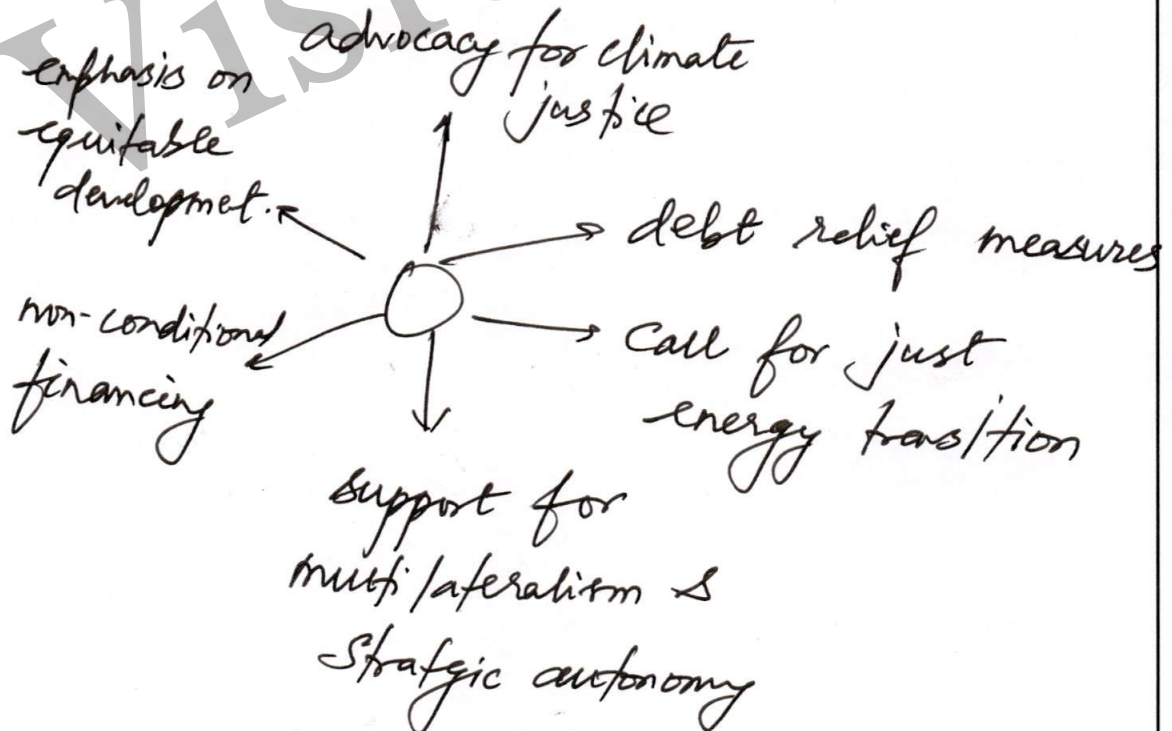 Vis
advocacy for climate
justice
emphasis on
equitable
developmet.
debt relief measures
non-conditional
financing
Call for just
energy transition
support for
multilateralism &
Strategic autonomy